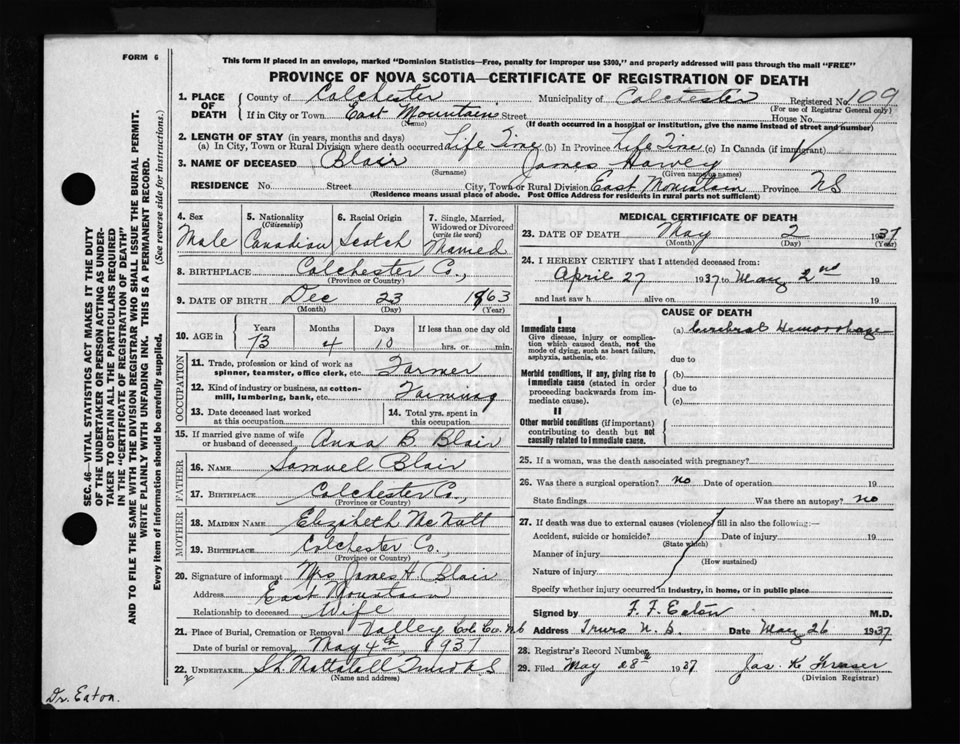 FORM 6
This form if placed in an envelope, marked "Dominion Statistics—Free, penalty for improper use $300," and properly addressed will pass through the mail "FREE"
PROVINCE OF NOVA SCOTIA—CERTIFICATE OF REGISTRATION OF DEATH
1. PLACE OF DEATH
County of Colchester Municipality of Colchester Registered No. 109
(For use of Registrar General only)
If in City or Town East Mountain Street House No.
(Name) (If death occurred in a hospital or institution, give the name instead of street and number)
2. LENGTH OF STAY (in years, months and days)
(a) In City, Town or Rural Division where death occurred Life Time (b) In Province Life Time (c) In Canada (if immigrant)
3. NAME OF DECEASED Blair James Harvey
(Surname) (Given name or names)
RESIDENCE No. Street City, Town or Rural Division East Mountain Province NS
(Residence means usual place of abode. Post Office Address for residents in rural parts not sufficient)
4. Sex Male
5. Nationality (Citizenship) Canadian
6. Racial Origin Scotch
7. Single, Married, Widowed or Divorced (write the word) Married
8. BIRTHPLACE Colchester Co.,
(Province or Country)
9. DATE OF BIRTH Dec 23 1863
(Month) (Day) (Year)
10. AGE in Years Months Days If less than one day old
73 4 10 hrs. or min.
OCCUPATION
11. Trade, profession or kind of work as spinner, teamster, office clerk, etc. Farmer
12. Kind of industry or business, as cotton-mill, lumbering, bank, etc. Farming
13. Date deceased last worked at this occupation
14. Total yrs. spent in this occupation
15. If married give name of wife or husband of deceased Anna B. Blair
FATHER
16. NAME Samuel Blair
17. BIRTHPLACE Colchester Co.,
(Province or Country)
MOTHER
18. MAIDEN NAME Elizabeth McNutt
19. BIRTHPLACE Colchester Co.,
(Province or Country)
20. Signature of informant Mrs James H. Blair
Address East Mountain
Relationship to deceased Wife
21. Place of Burial, Cremation or Removal Valley Col. Co. NS
Date of burial or removal May 4th, 1937
22. UNDERTAKER Truro N.S
(Name and address)
MEDICAL CERTIFICATE OF DEATH
23. DATE OF DEATH May 2 1937
(Month) (Day) (Year)
24. I HEREBY CERTIFY that I attended deceased from:
April 27 1937 to May 2nd 19
and last saw h alive on 19
CAUSE OF DEATH
I
Immediate cause
Give disease, injury or complication which caused death, not the mode of dying, such as heart failure, asphyxia, asthenia, etc.
(a) Cerebral Hemorrhage
due to
Morbid conditions, if any, giving rise to immediate cause (stated in order proceeding backwards from immediate cause).
(b)
due to
(c)
II
Other morbid conditions (if important) contributing to death but not causally related to immediate cause.
25. If a woman, was the death associated with pregnancy?
26. Was there a surgical operation? no Date of operation 19
State findings Was there an autopsy? no
27. If death was due to external causes (violence) fill in also the following:—
Accident, suicide or homicide? Date of injury 19
(State which)
Manner of injury
(How sustained)
Nature of injury
Specify whether injury occurred in industry, in home, or in public place
Signed by F. F. Eaton M.D.
Address Truro N. S. Date May 26 1937
28. Registrar's Record Number
29. Filed May 28th 1937 Jas. K. Fraser
(Division Registrar)
SEC. 46—VITAL STATISTICS ACT MAKES IT THE DUTY
OF THE UNDERTAKER OR PERSON ACTING AS UNDER-
TAKER TO OBTAIN ALL THE PARTICULARS REQUIRED
IN THE "CERTIFICATE OF REGISTRATION OF DEATH"
AND TO FILE THE SAME WITH THE DIVISION REGISTRAR WHO SHALL ISSUE THE BURIAL PERMIT.
WRITE PLAINLY WITH UNFADING INK. THIS IS A PERMANENT RECORD.
Every item of information should be carefully supplied.
(See reverse side for instructions.)
Dr. Eaton.